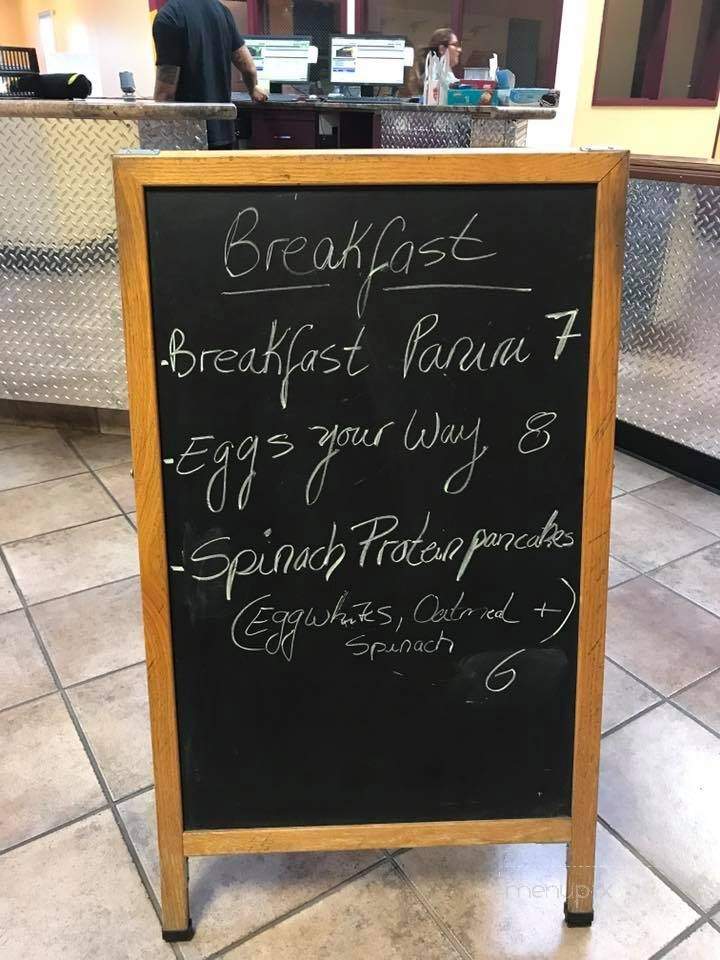 Breakfast
-Breakfast Panini 7
-Eggs your Way 8
-Spinach Protein pancakes
(Eggwhites, Oatmeal +)
Spinach
6
menupix